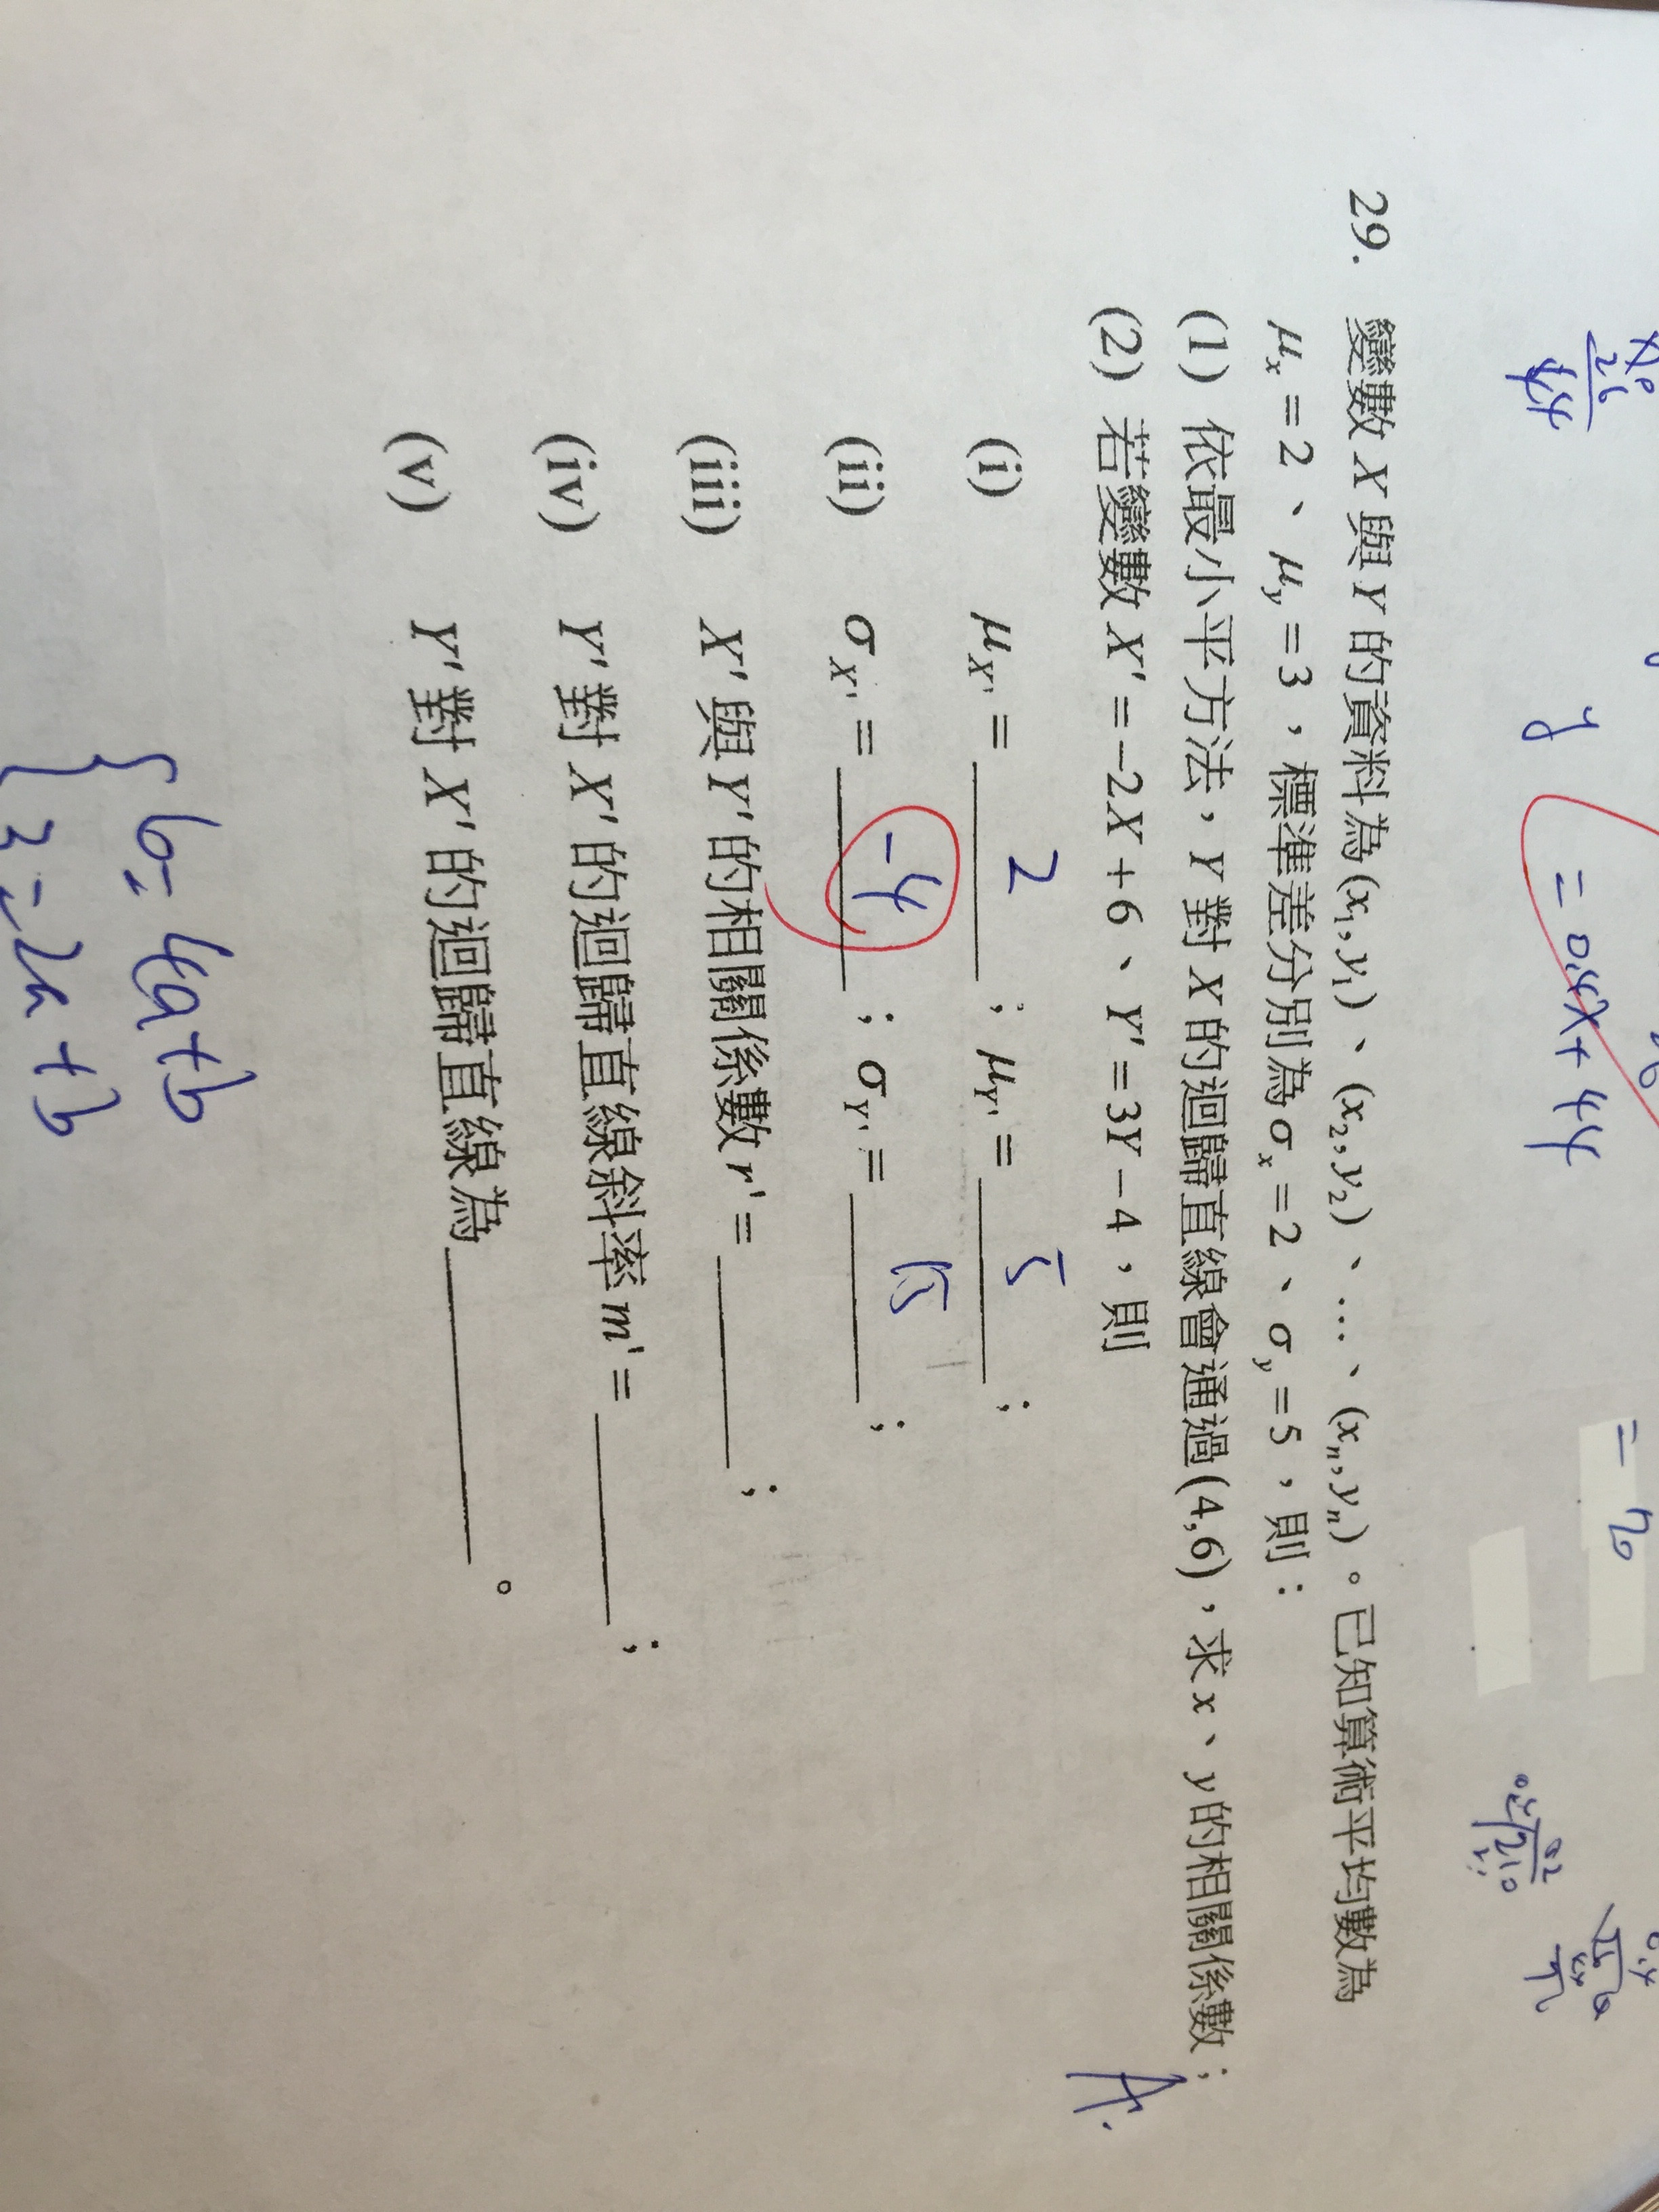 y = 0.4x + 4.4
29. 變數 X 與 Y 的資料為 (x₁,y₁)、(x₂,y₂)、…、(xₙ,yₙ)。已知算術平均數為
μₓ = 2、μᵧ = 3，標準差分別為 σₓ = 2、σᵧ = 5，則：
(1) 依最小平方法，Y 對 X 的迴歸直線會通過 (4,6)，求 x、y 的相關係數；
(2) 若變數 X' = -2X + 6、Y' = 3Y - 4，則
(i) μ_X' = 2 ; μ_Y' = 5 ;
(ii) σ_X' = -4 ; σ_Y' = 15 ;
(iii) X' 與 Y' 的相關係數 r' = ;
(iv) Y' 對 X' 的迴歸直線斜率 m' = ;
(v) Y' 對 X' 的迴歸直線為 。
6 = 4a + b
3 = 2a + b